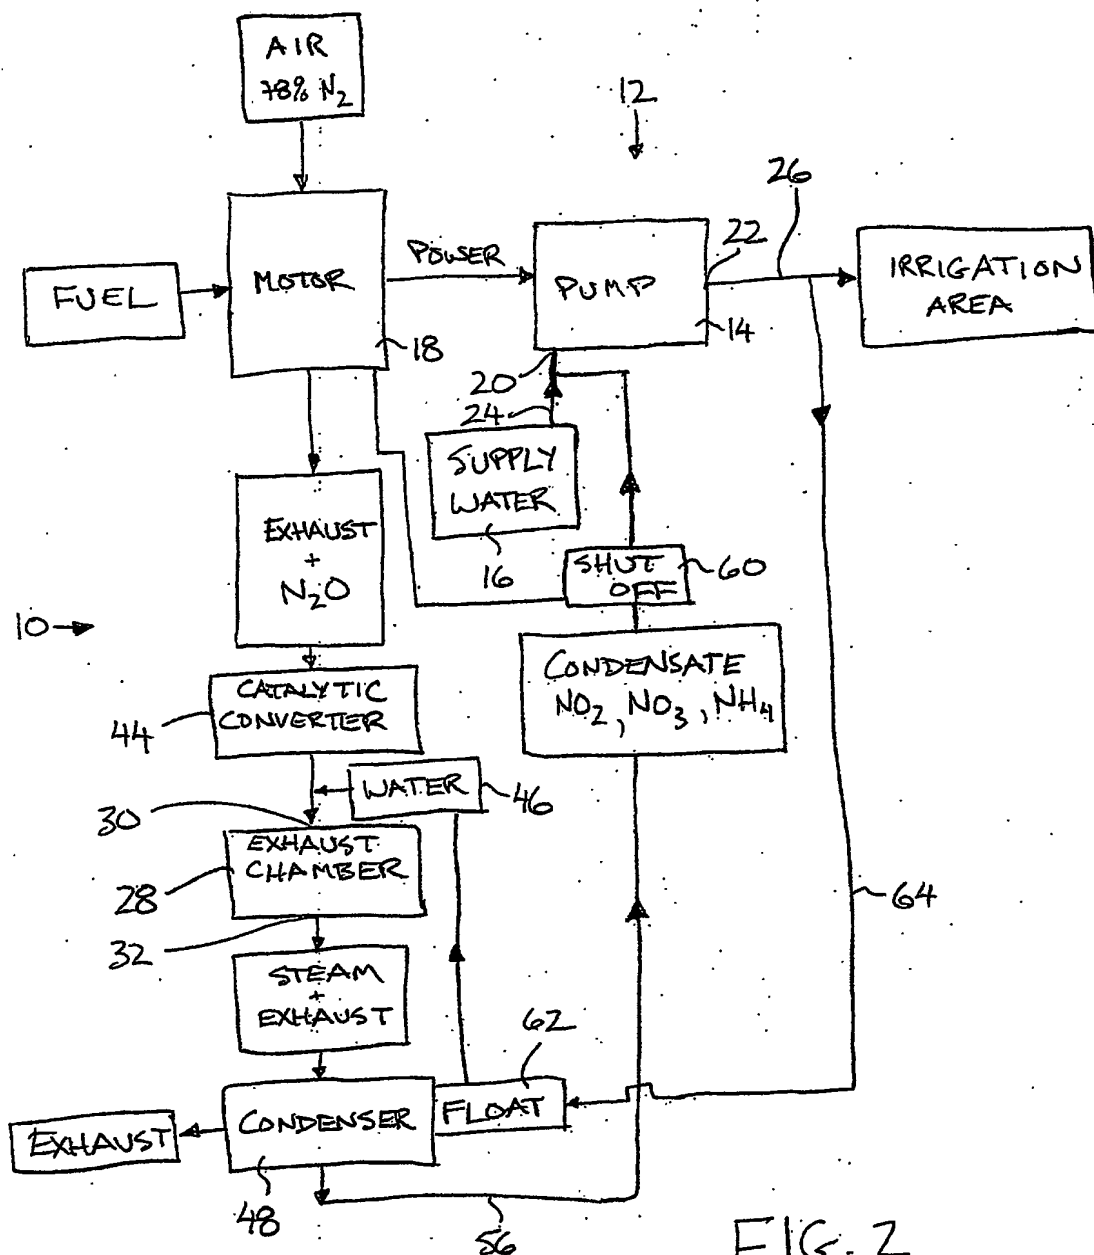 AIR
78% N2
12
26
FUEL
MOTOR
POWER
PUMP
22
IRRIGATION
AREA
18
14
20
24
SUPPLY
WATER
16
EXHAUST
+
N2O
SHUT
OFF
60
10
CONDENSATE
NO2, NO3, NH4
CATALYTIC
CONVERTER
44
WATER
46
30
EXHAUST
CHAMBER
28
64
32
STEAM
+
EXHAUST
62
CONDENSER
FLOAT
EXHAUST
48
56
FIG. 2